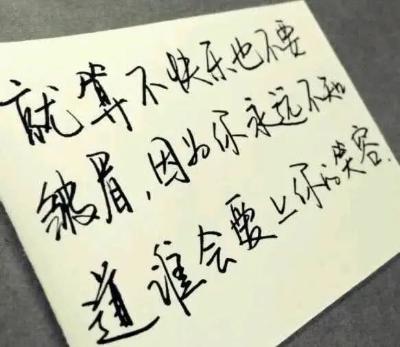 就算不快乐也不要
皱眉，因为你永远不知
道谁会爱上你的笑容.